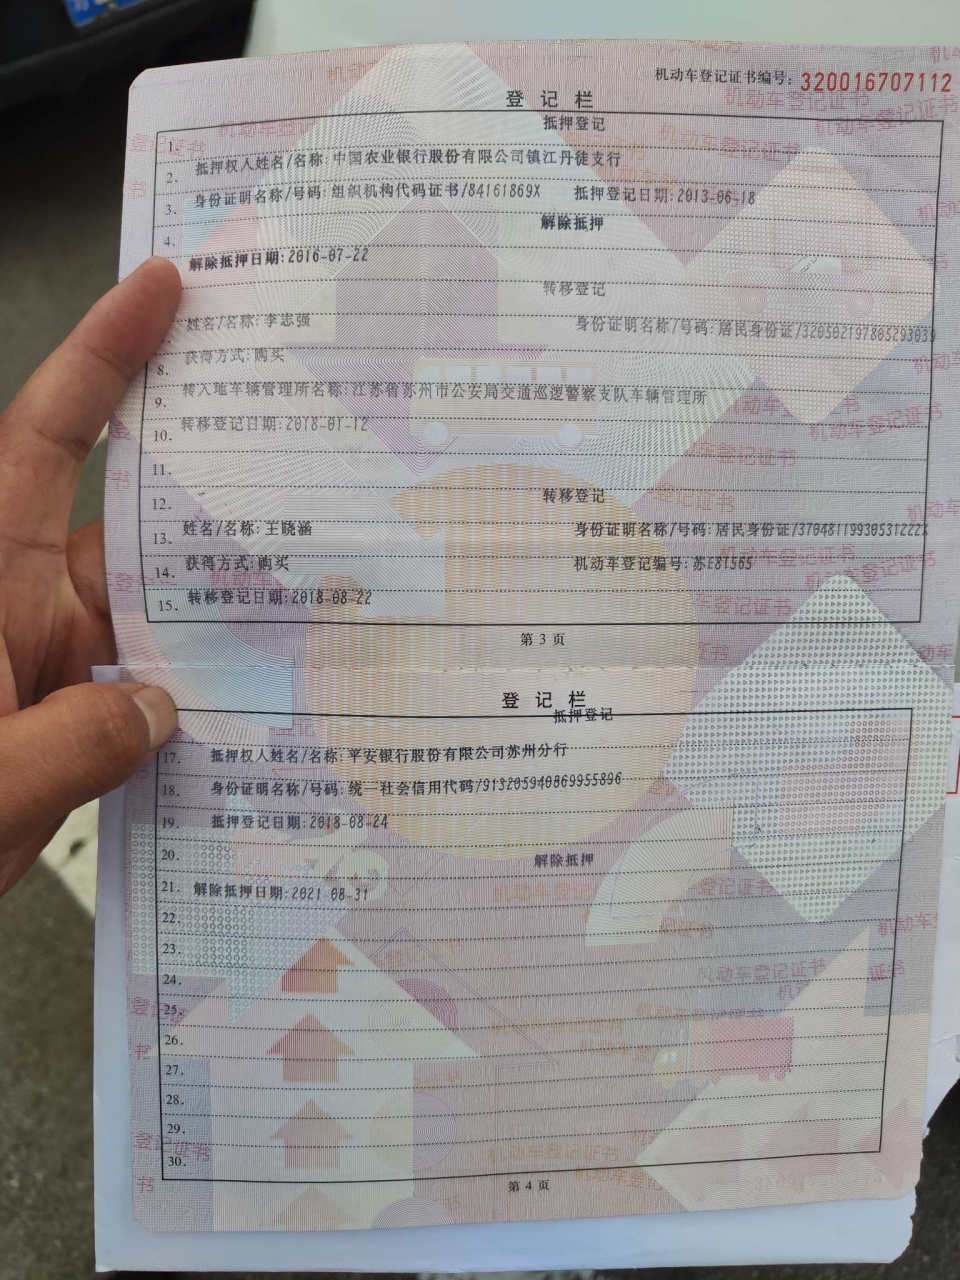 机动车登记证书编号：320016707112
登记栏
抵押登记
1.
抵押权人姓名/名称:中国农业银行股份有限公司镇江丹徒支行
2.
身份证明名称/号码:组织机构代码证书/84161869X 抵押登记日期:2013-06-18
3.
解除抵押
4.
解除抵押日期:2016-07-22
转移登记
姓名/名称:李志强 身份证明名称/号码:居民身份证/320502197805293039
获得方式:购买
8.
转入地车辆管理所名称:江苏省苏州市公安局交通巡逻警察支队车辆管理所
9.
转移登记日期:2018-01-12
10.
11.
转移登记
12.
姓名/名称:王晓涵 身份证明名称/号码:居民身份证/37048119930531222X
13.
获得方式:购买 机动车登记编号:苏E8T565
14.
转移登记日期:2018-08-22
15.
第3页
登记栏
抵押登记
17. 抵押权人姓名/名称:平安银行股份有限公司苏州分行
18. 身份证明名称/号码:统一社会信用代码/913205940869955896
19. 抵押登记日期:2018-08-24
20. 解除抵押
21. 解除抵押日期:2021-08-31
22.
23.
24.
25.
26.
27.
28.
29.
30.
第4页